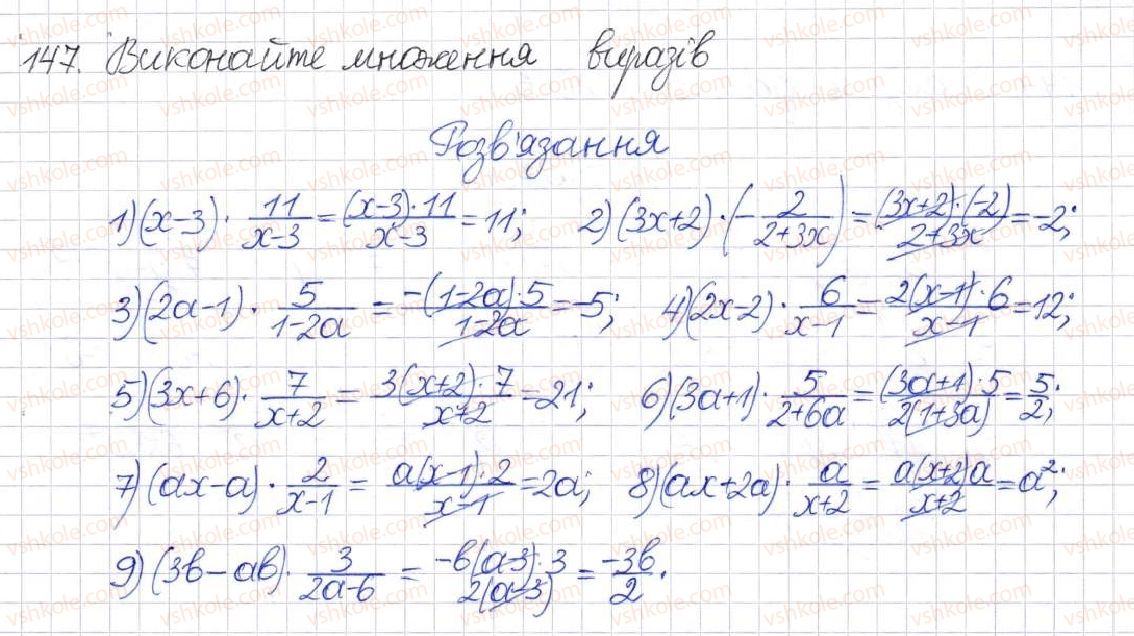 147. Виконайте множення виразів
Розв'язання
1) (x-3) · 11/(x-3) = (x-3)·11/(x-3) = 11; 2) (3x+2) · (-2/(2+3x)) = (3x+2)·(-2)/(2+3x) = -2;
3) (2a-1) · 5/(1-2a) = -(1-2a)·5/(1-2a) = -5; 4) (2x-2) · 6/(x-1) = 2(x-1)·6/(x-1) = 12;
5) (3x+6) · 7/(x+2) = 3(x+2)·7/(x+2) = 21; 6) (3a+1) · 5/(2+6a) = (3a+1)·5/(2(1+3a)) = 5/2;
7) (ax-a) · 2/(x-1) = a(x-1)·2/(x-1) = 2a; 8) (ax+2a) · a/(x+2) = a(x+2)a/(x+2) = a²;
9) (3b-ab) · 3/(2a-6) = -b(a-3)·3/(2(a-3)) = -3b/2.